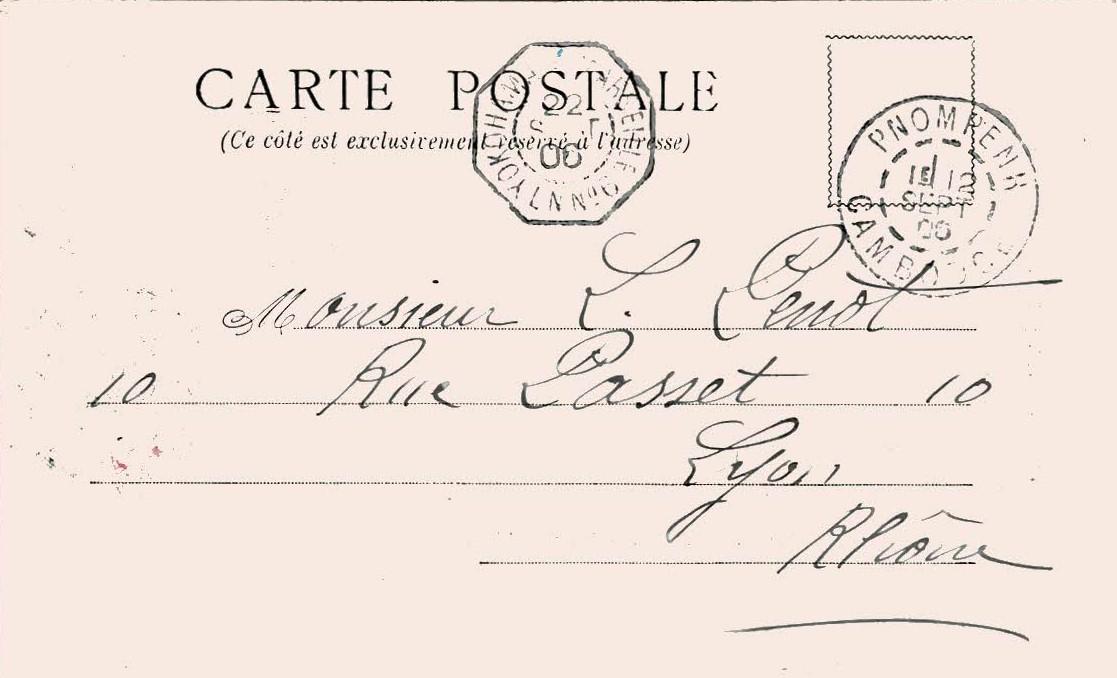 CARTE POSTALE
(Ce côté est exclusivement réservé à l'adresse)
YOKOHAMA
22
06
LYON
PNOMPENH
1E 12
SEPT
06
CAMBODGE
Monsieur L. Penot
10 Rue Passet 10
Lyon
Rhône